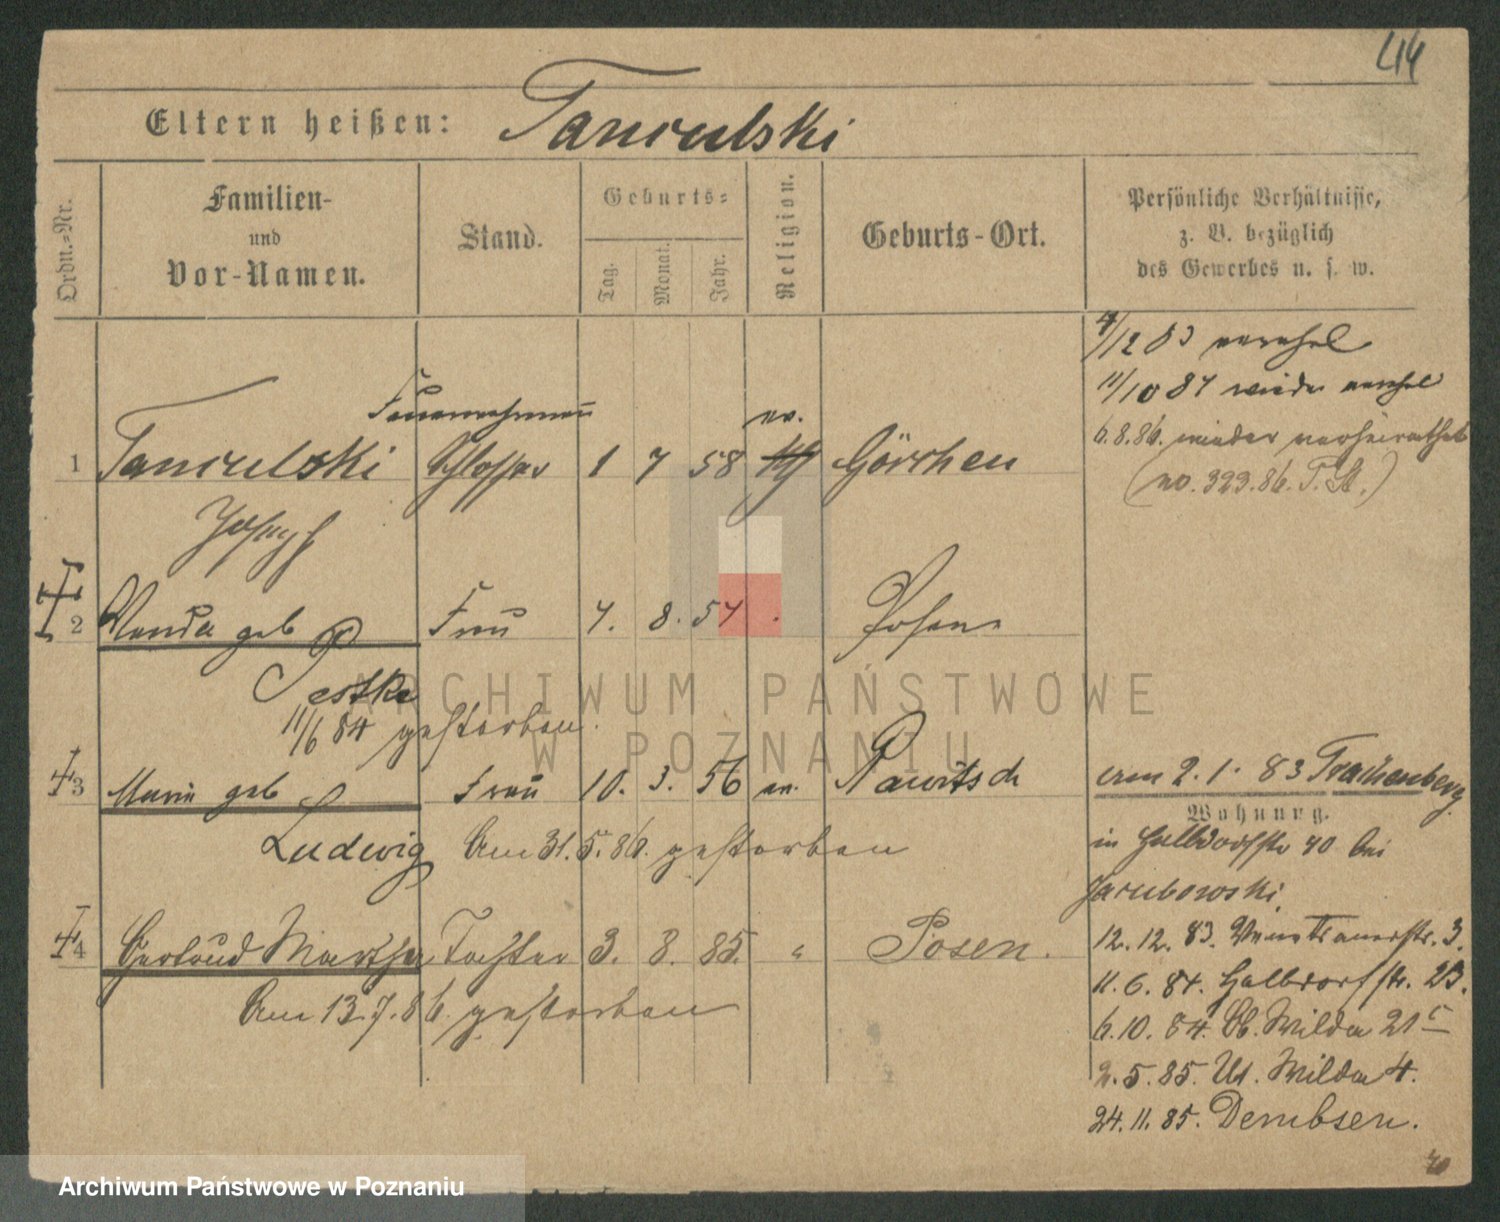 414
Eltern heißen: Tanculski
Ordn.-Nr.
Familien- und Vor-Namen.
Stand.
Geburts-
Tag.
Monat.
Jahr.
Religion.
Geburts-Ort.
Persönliche Verhältnisse,
z. B. bezüglich
des Gewerbes u. s. w.
4/12 83 verehel
11/10 84 wieder verehel
6.8.86. wieder verheirathet
(no. 323.86. T. St.)
Feuerwehrmann
ev.
1 Tanculski Schlosser 1 7 58 kth Görchen
Joseph
2 Wanda geb Frau 7. 8. 54 Posen
Pestke
11/6 84 gestorben.
3 Marie geb Frau 10. 3. 56 ev. Rawitsch
Ludwig Am 31.5.86. gestorben
4 Gertrud Martha Tochter 3. 8. 85. " Posen.
Am 13.7.86. gestorben
2.1.83 Trachenberg
Wohnung.
in Halbdorfstr 40 bei
Jacubowski.
12.12.83. 3.
11.6.84. Halbdorfstr. 23.
6.10.84. Ob. Wilda 21
2.5.85. Ut. Wilda 4.
24.11.85. Dembsen.
ARCHIWUM PAŃSTWOWE
W POZNANIU
Archiwum Państwowe w Poznaniu